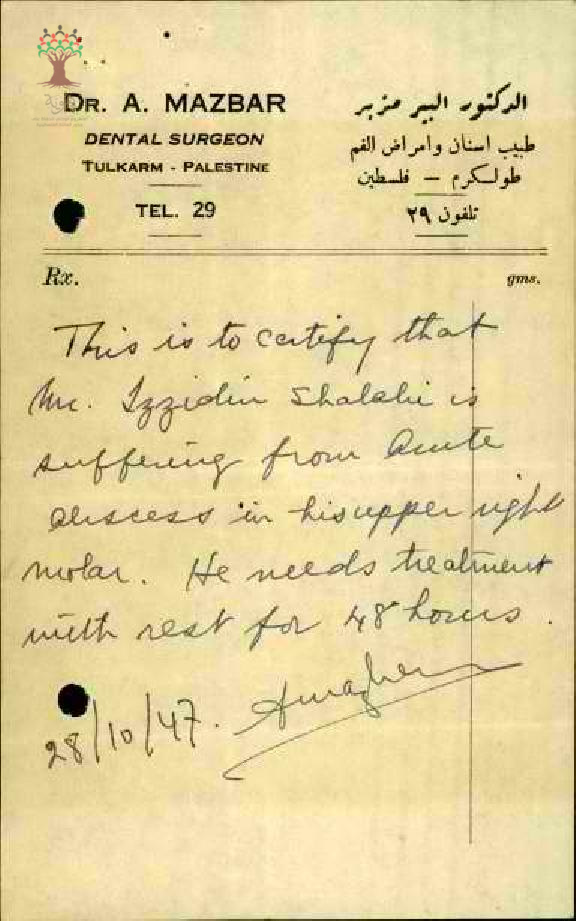 DR. A. MAZBAR
DENTAL SURGEON
TULKARM - PALESTINE
TEL. 29
الدكتور البير مزبر
طبيب اسنان وامراض الفم
طولكرم — فلسطين
تلفون ٢٩
Rx.
gms.
This is to certify that
Mr. Izzidin Shalabi is
suffering from acute
abscess in his upper right
molar. He needs treatment
with rest for 48 hours.
28/10/47.